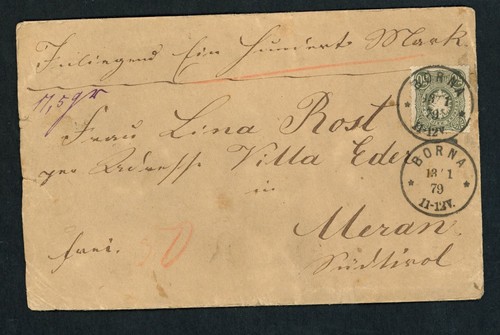 Inliegend Ein Hundert Mark.
17,5 gr
Frau Lina Rost
per Adresse Villa Eder
in
Meran.
Südtirol
frei.
50
BORNA
18 1
79
11-12V.
BORNA
18 1
79
11-12V.